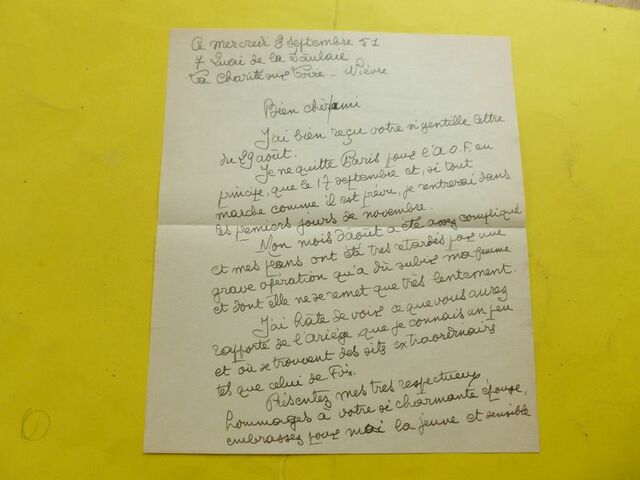 Ce mercredi 3 septembre 51
7 Quai de la Saulaie
La Charité sur Loire - Nièvre
Bien cher ami
J'ai bien reçu votre si gentille lettre
du 29 août.
Je ne quitte Paris pour l'A.O.F., en
principe, que le 17 septembre et, si tout
marche comme il est prévu, je rentrerai dans
les premiers jours de novembre.
Mon mois d'août a été assez compliqué
et mes plans ont été très retardés par une
grave opération qu'a dû subir ma femme
et dont elle ne se remet que très lentement.
J'ai hâte de voir ce que vous aurez
rapporté de l'Ariège, que je connais un peu
et où se trouvent des sites extraordinaires
tels que celui de Foix.
Présentez mes très respectueux
hommages à votre si charmante épouse,
embrassez pour moi la jeune et sensible